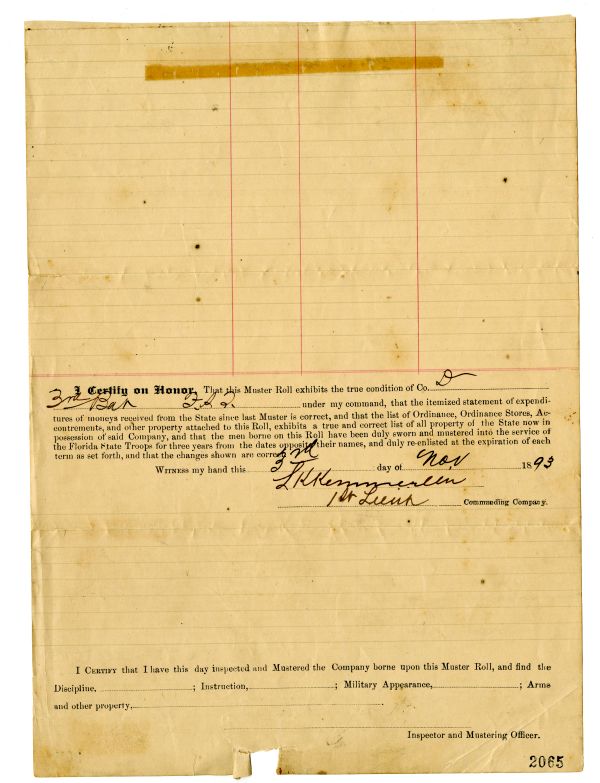 I Certify on Honor, That this Muster Roll exhibits the true condition of Co. D
3rd Bat F. S. T. under my command, that the itemized statement of expendi-
tures of moneys received from the State since last Muster is correct, and that the list of Ordinance, Ordinance Stores, Ac-
coutrements, and other property attached to this Roll, exhibits a true and correct list of all property of the State now in
possession of said Company, and that the men borne on this Roll have been duly sworn and mustered into the service of
the Florida State Troops for three years from the dates opposite their names, and duly re-enlisted at the expiration of each
term as set forth, and that the changes shown are correct.
Witness my hand this 3rd day of Nov 1893
1st Lieut Commanding Company.
I Certify that I have this day inspected and Mustered the Company borne upon this Muster Roll, and find the
Discipline, ; Instruction, ; Military Appearance, ; Arms
and other property,
Inspector and Mustering Officer.
2065